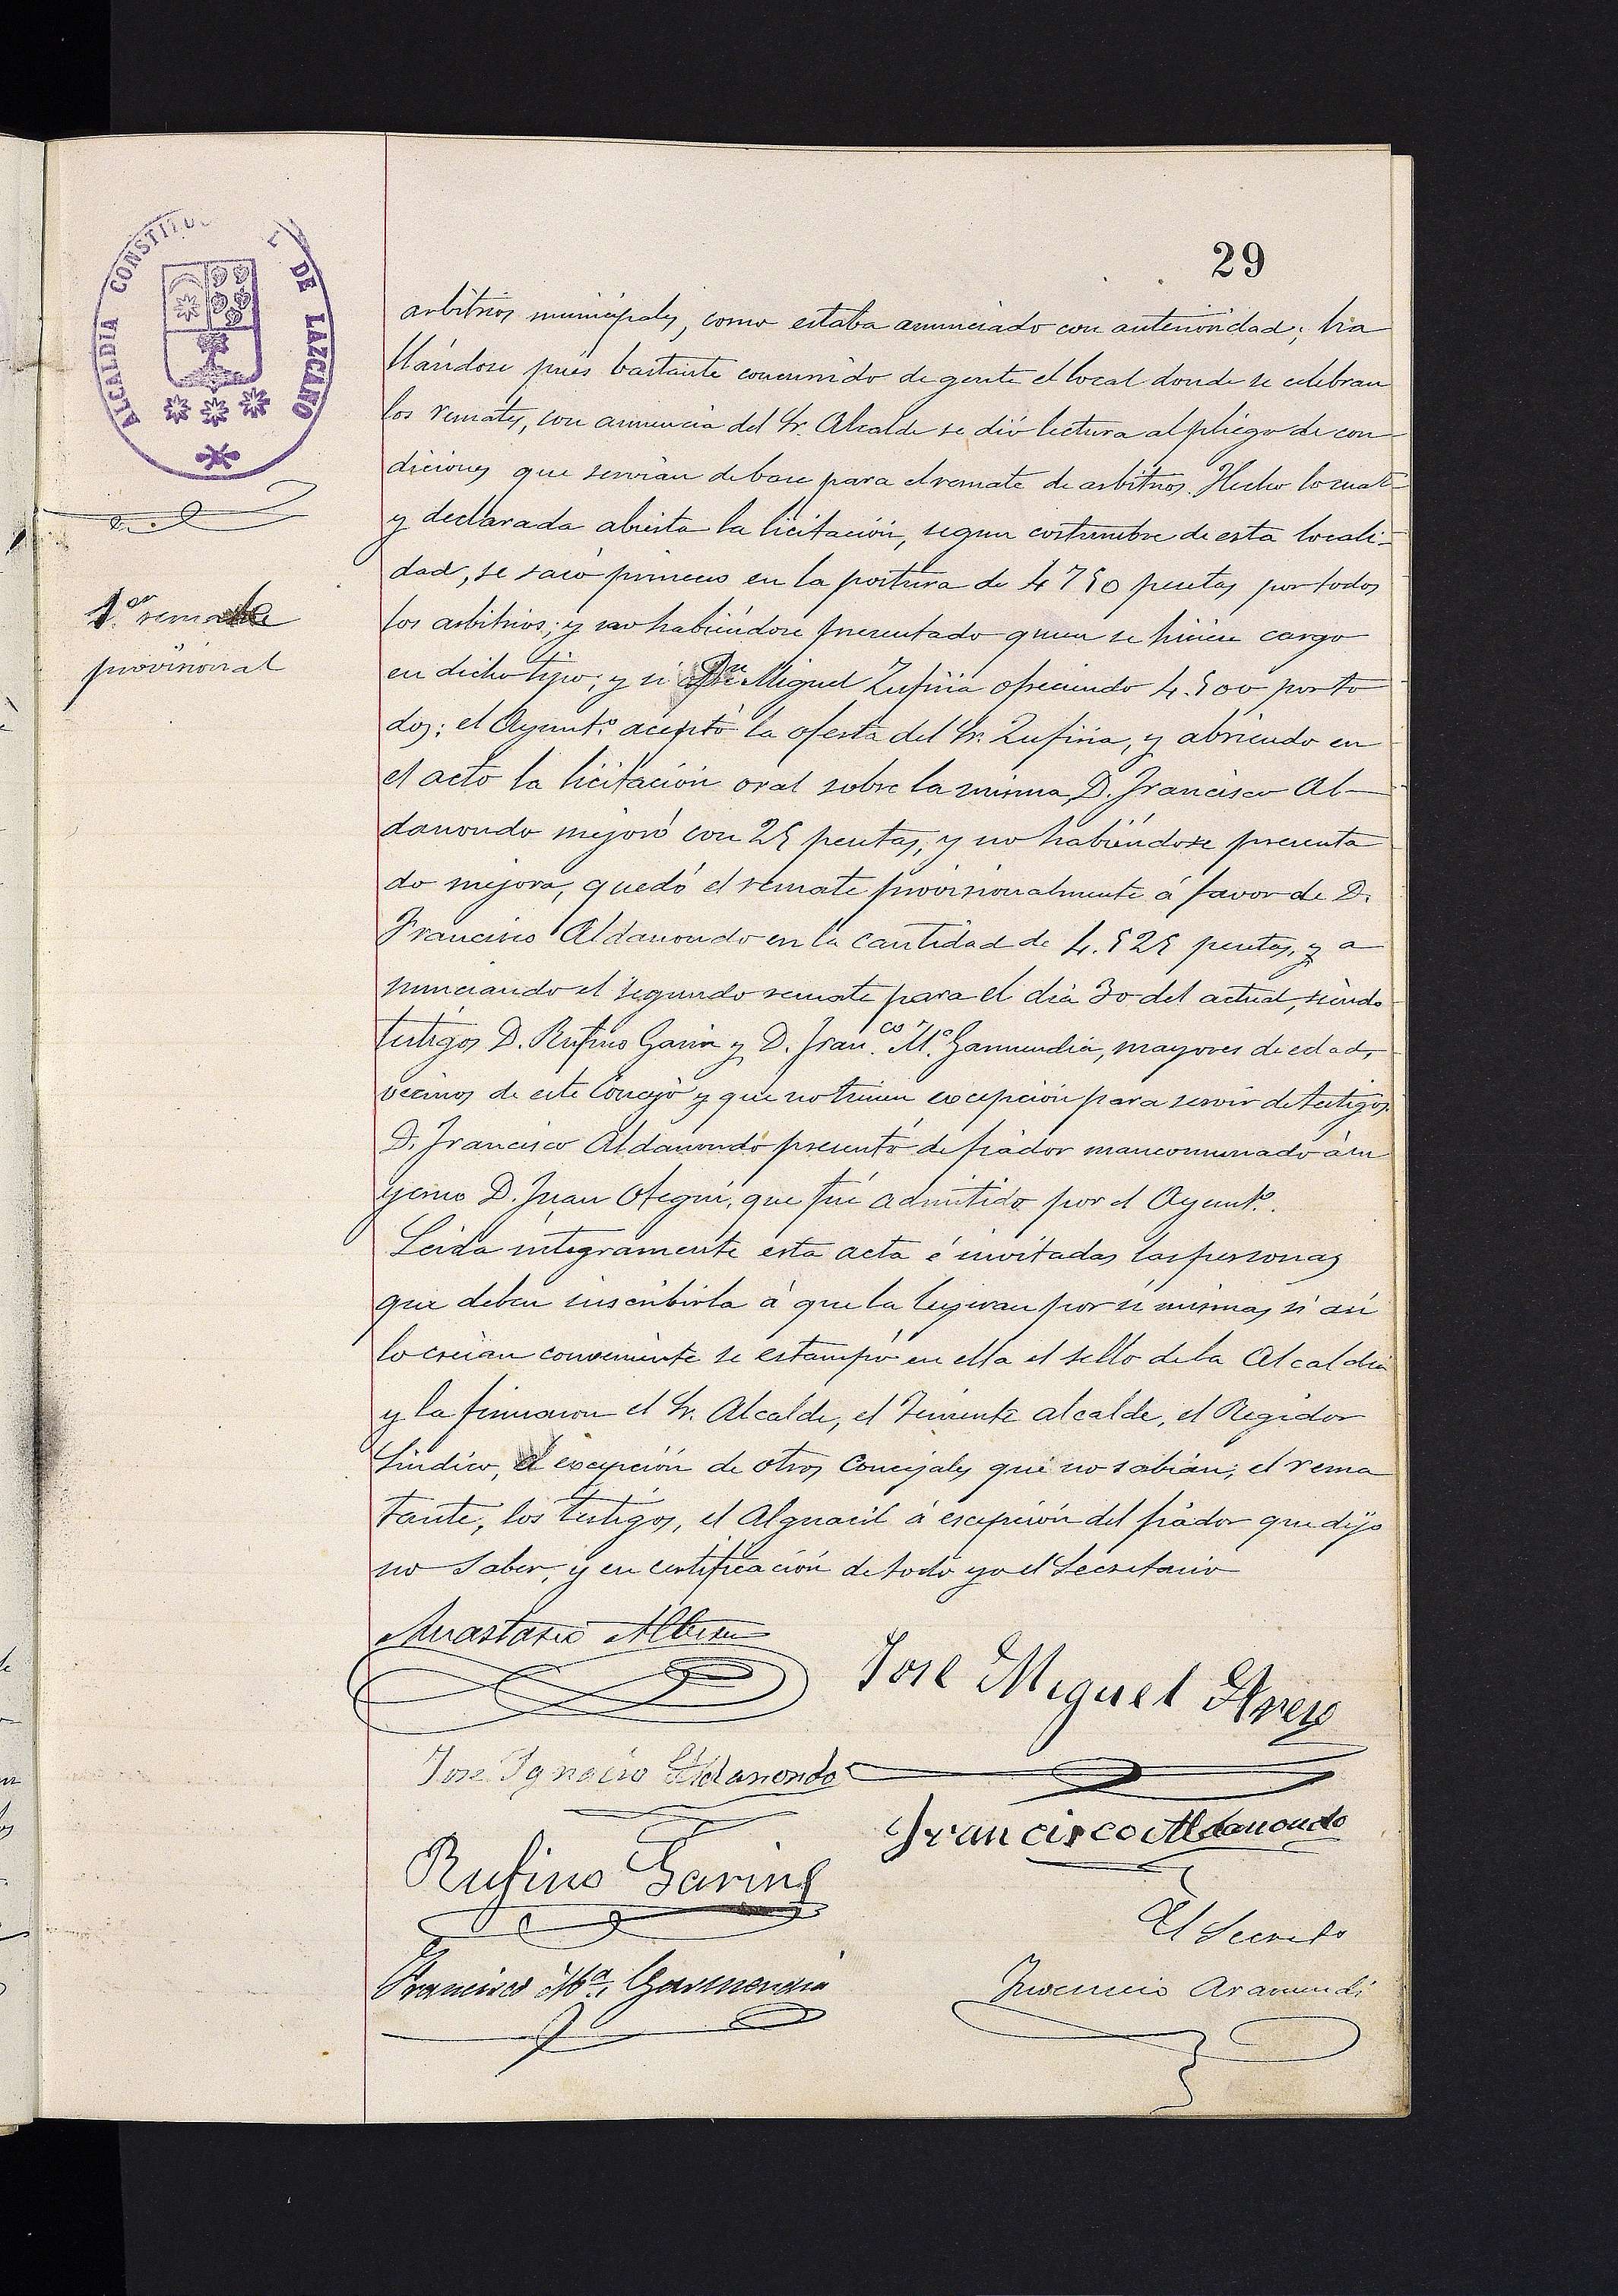 29
ALCALDIA CONSTITU L DE LAZCANO
1.er remate
provisional
arbitrios municipales, como estaba anunciado con anterioridad; ha
llándose pués bastante concurrido de gente el local donde se celebran
los remates, con anuencia del Sr. Alcalde se dió lectura al pliego de con-
diciones que servian de base para el remate de arbitrios. Hecho lo cual
y declarada abierta la licitación, segun costumbre de esta locali-
dad, se sacó primero en la postura de 4750 pesetas por todos
los arbitrios; y no habiéndose presentado quien se hiciere cargo
en dicho tipo; y si Dn. Miguel Zufiria ofreciendo 4.500 por to
dos; el Ayunt.o aceptó la oferta del Sr. Zufiria, y abriendo en
el acto la licitación oral sobre la misma, D. Francisco Al-
danondo mejoró con 25 pesetas, y no habiéndose presenta
do mejora, quedó el remate provisionalmente á favor de D.
Francisco Aldanondo en la cantidad de 4.525 pesetas, y a
nunciando el segundo remate para el dia 30 del actual, siendo
testigos D. Rufino Garin y D. Fran.co M.a Garmendia, mayores de edad,
vecinos de este Concejo y que no tienen excepción para servir de testigos.
D. Francisco Aldanondo presentó de fiador mancomunado á su
yerno D. Juan Otegui, que fué admitido por el Ayunt.o.
Leida integramente esta acta é invitadas las personas
que deben suscribirla á que la leyeran por si mismas, si asi
lo creian conveniente se estampó en ella el sello de la Alcaldia
y la firmaron el Sr. Alcalde, el Teniente alcalde, el Regidor
Sindico, á excepción de otros Concejales que no sabian; el rema
tante, los testigos, el Alguacil á escepción del fiador que dijo
no saber, y en certificación de todo yo el Secretario
Anastasio Alberdi
José Miguel
Jose Ignacio Aldanondo
Francisco Aldanondo
Rufino Garin
El Secreto
Francisco M.a Garmendia
Inocencio Aramendi